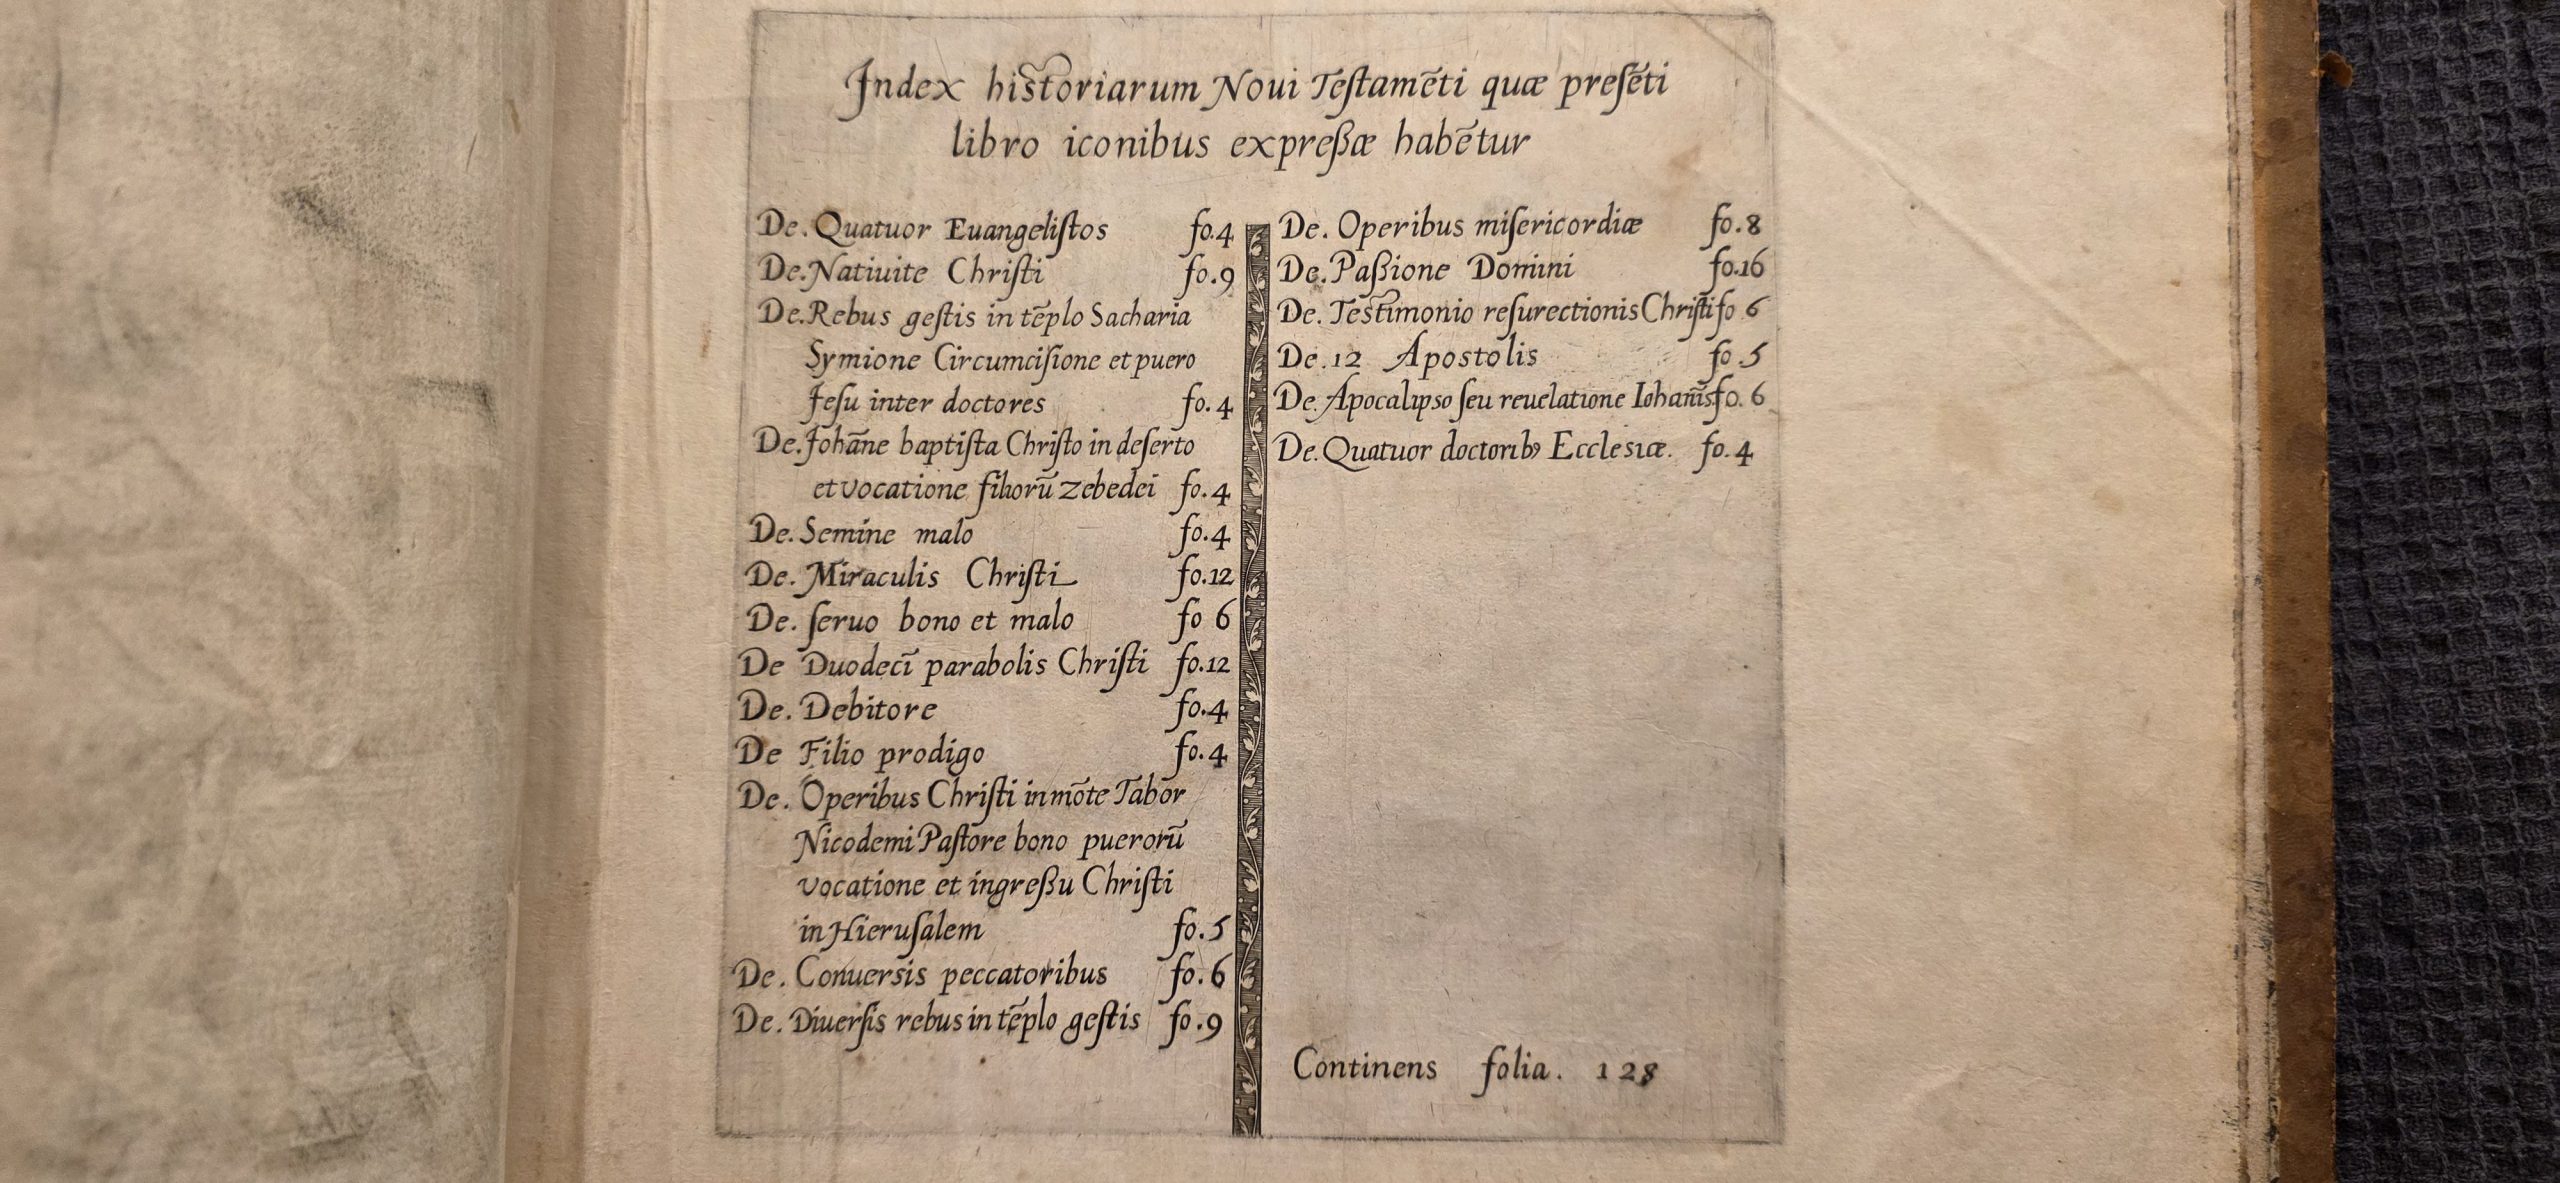 Index historiarum Noui Teſtamẽti quæ preſẽti
libro iconibus expreßæ habẽtur
De. Quatuor Euangeliſtos fo.4
De. Natiuite Chriſti fo.9
De. Rebus geſtis in tẽplo Sacharia
Symione Circumciſione et puero
Jeſu inter doctores fo.4
De. Johãne baptiſta Chriſto in deſerto
et vocatione filiorũ Zebedei fo.4
De. Semine malo fo.4
De. Miraculis Chriſti fo.12
De. ſeruo bono et malo fo 6
De Duodecĩ parabolis Chriſti fo.12
De. Debitore fo.4
De Filio prodigo fo.4
De. Operibus Chriſti in mõte Tabor
Nicodemi Paſtore bono puerorũ
vocatione et ingreßu Chriſti
in Hieruſalem fo.5
De. Conuersis peccatoribus fo.6
De. Diuerſis rebus in tẽplo geſtis fo.9
De. Operibus miſericordiæ fo.8
De. Paßione Domini fo.16
De. Testimonio reſurectionis Chriſti fo 6
De. 12 Apostolis fo.5
De. Apocalipso ſeu reuelatione Iohan̄is fo. 6
De. Quatuor doctoribꝯ Ecclesiæ. fo.4
Continens folia. 128